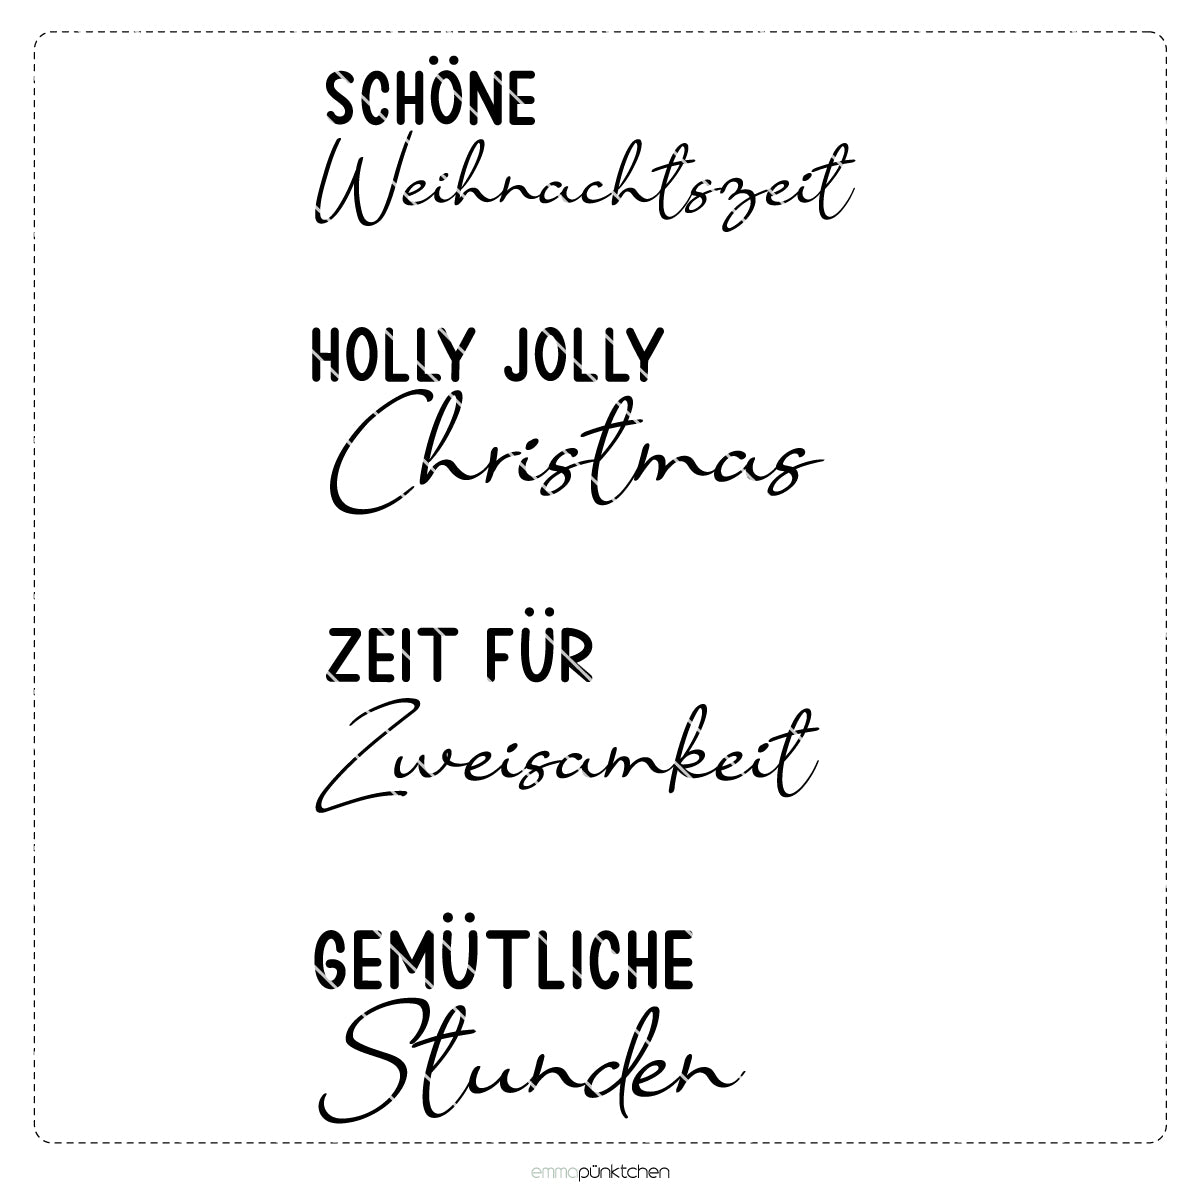 SCHÖNE
Weihnachtszeit
HOLLY JOLLY
Christmas
ZEIT FÜR
Zweisamkeit
GEMÜTLICHE
Stunden
emmapünktchen